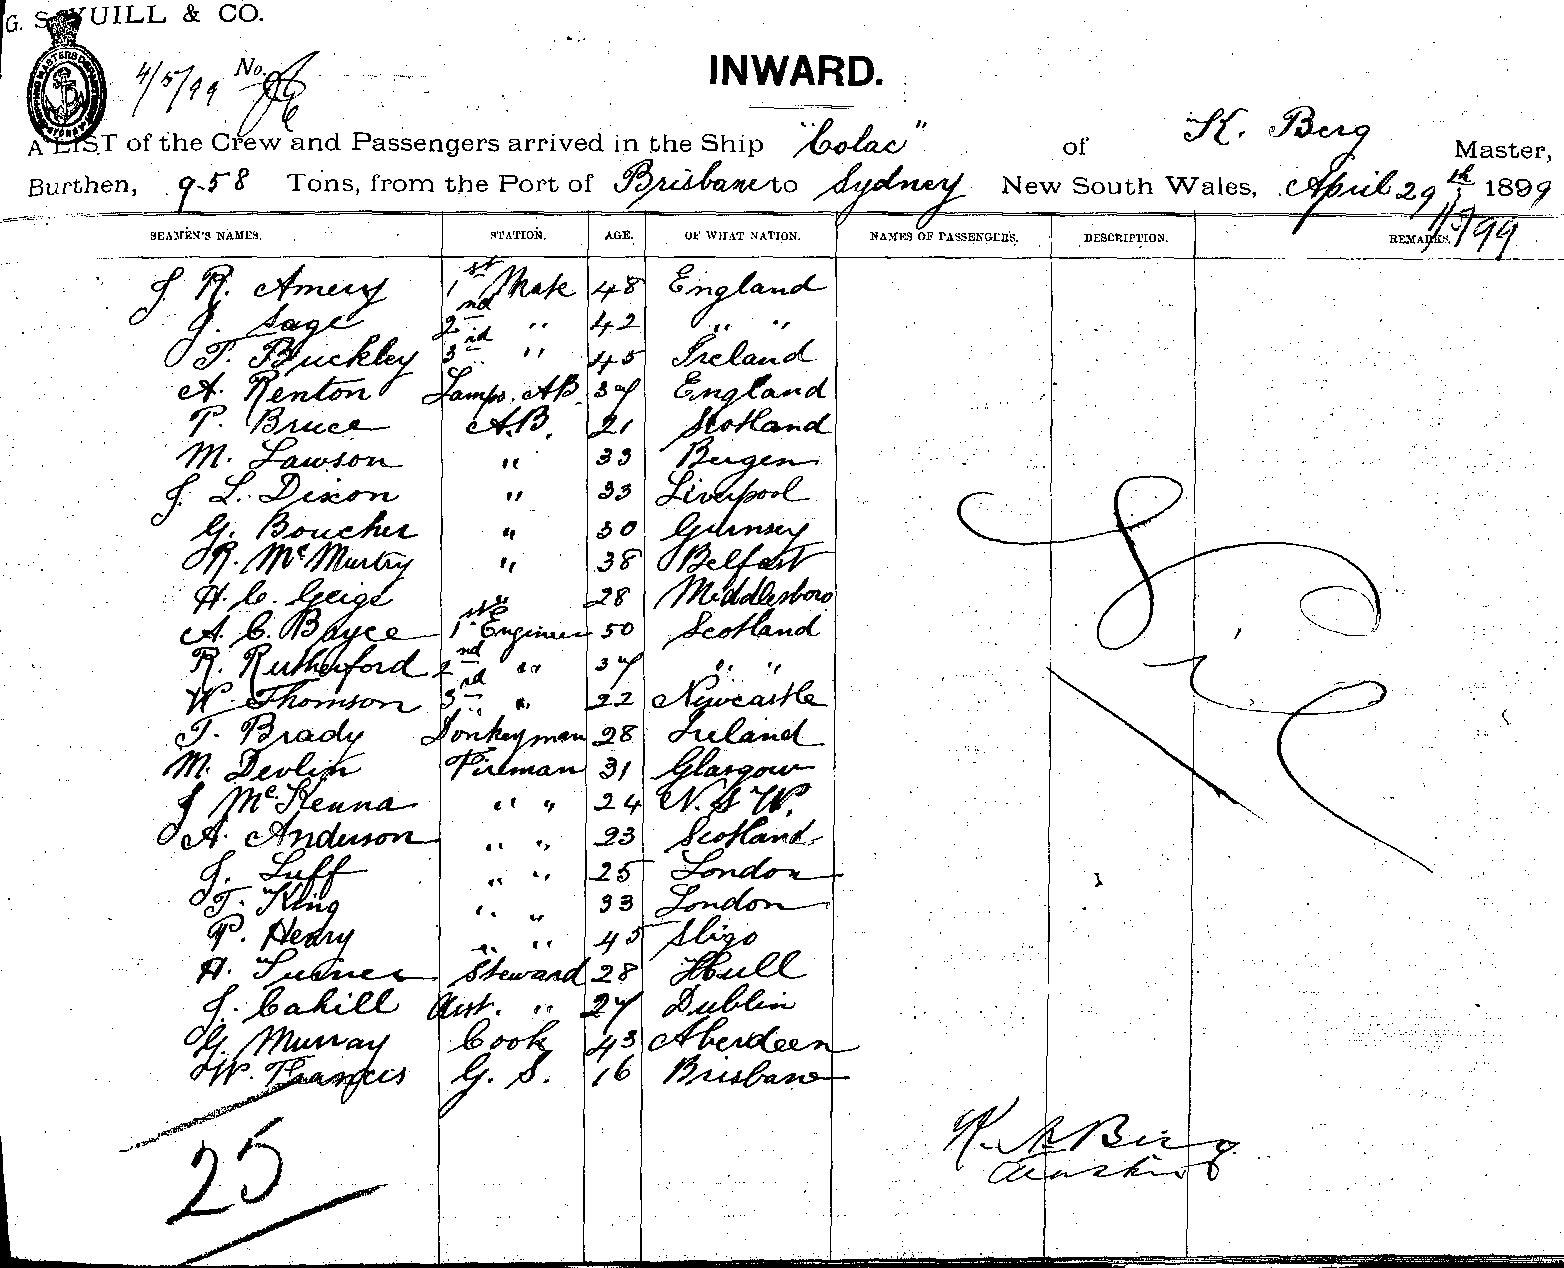 G. S. YUILL & CO.
4/5/99 No.
INWARD.
A LIST of the Crew and Passengers arrived in the Ship "Colac" of K. Berg Master,
Burthen, 958 Tons, from the Port of Brisbane to Sydney New South Wales, April 29th 1899
SEAMEN'S NAMES. STATION. AGE. OF WHAT NATION. NAMES OF PASSENGERS. DESCRIPTION. REMARKS.
J R. Amery 1st Mate 48 England
J. Sage 2nd " 42 " "
T. Buckley 3rd " 45 Ireland
A. Renton Lamps. AB. 37 England
P. Bruce A.B. 21 Scotland
M. Lawson " 33 Bergen
J. L. Dixon " 33 Liverpool
G. Boucher " 30 Gurnsey
R. McMurtry " 38 Belfast
H. C. Geige " 28 Middlesboro
A. C. Boyce 1st Engineer 50 Scotland
R. Rutherford 2nd " 37 " "
W. Thomson 3rd " 22 Newcastle
T. Brady Donkeyman 28 Ireland
M. Devlin Fireman 31 Glasgow
J McKenna " " 24 N. S. W.
A. Anderson " " 23 Scotland
J. Luff " " 25 London
T. King " " 33 London
P. Henry " " 45 Sligo
H. Turner Steward 28 Hull
J. Cahill Asst. " 27 Dublin
G. Murray Cook 43 Aberdeen
W. Francis G. S. 16 Brisbane
25
K. Berg
Master